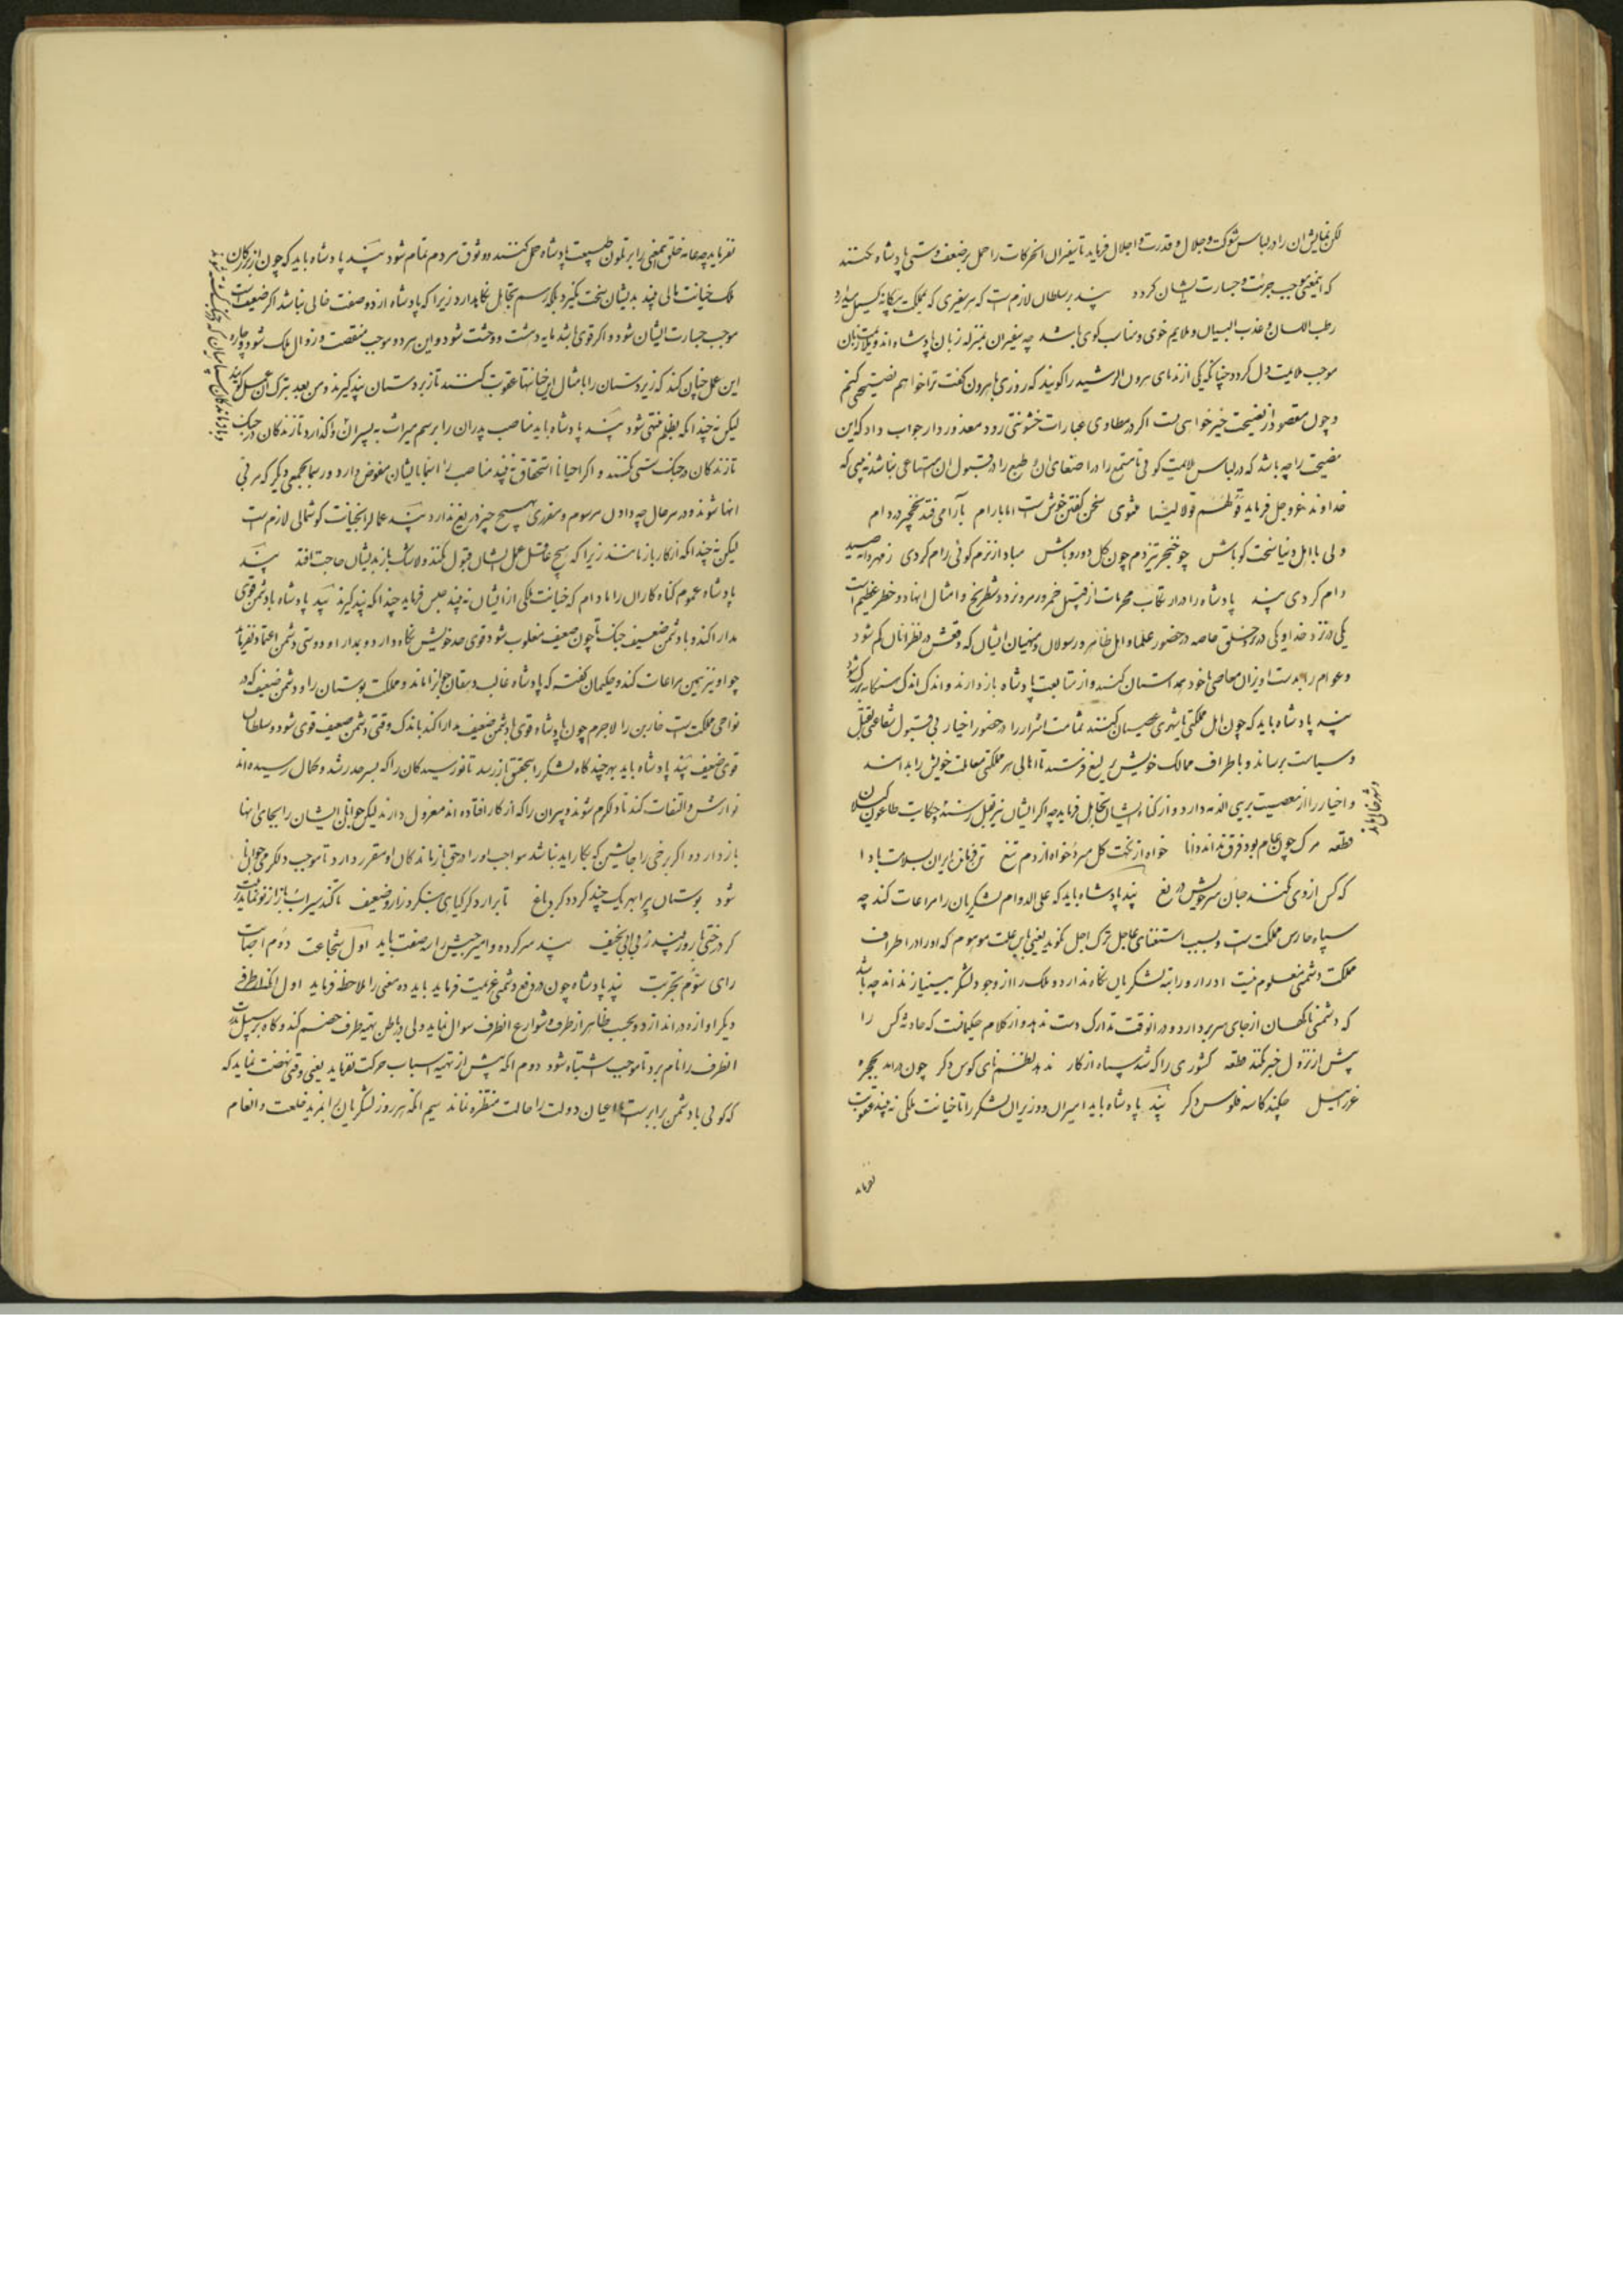 لکن نمایش ان را در لباس شوکت و جلال و قدرت و اجلال فرماید تا سفیران انحرکات را حمل بر ضعف و سستی پادشاه نکنند
که اینمعنی موجب جرئت و جسارت ایشان کردد پند بر سلطان لازم است که هر سفیری که بمملکت بیکانه کسیل میدارد
رطب اللسان و عذب البیان و ملایم خوی و مناسب کوی باشد چه سفیران بمنزله زبان پادشاه اند و ملایمت زبان
موجب ملایمت دل کردد چنانکه یکی از ندمای هرون الرشید را کویند که روزی با هرون کفت ترا خواهم نصیحتی کنم
و چون مقصود از نصیحت خیرخواهی است اکر در مطاوی عبارات خشونتی رود معذور دار جواب داد که این
نصیحت را چه باشد که در لباس ملایمت کوئی تا مستمع را در اصغای ان و طبع را در قبول ان امتناعی نباشد نه بینی که
خداوند عزوجل فرماید و قل لهم قولا لینا مثنوی سخن کفتن خوش است اما بارام بآرامی فتد نخچیر در دام
ولی با اهل دنیا سخت کو باش چو خنجر تیز دم چون کل دورو باش مباد از نرم کوئی رام کردی
دام کردی پند پادشاه را در ارتکاب محرمات از قبیل خمر و زمر و نرد و شطرنج و امثال انها دو خطر عظیم است
یکی در نزد خدا و یکی در نزد خلق خاصه در حضور علما و اهل ظاهر و رسولان و منهیان ایشان که وقعش در نظر انان کم شود
و عوام را بدست اویز ان معاصی با خود همداستان کنند و از متابعت پادشاه باز دارند و اندک اندک هنکامه بزرک شود
پند پادشاه باید که چون اهل مملکتی یا شهری عصیان کنند تمامت اشرار را در حضور اخیار بی قبول شفاعتی بقتل
و سیاست برساند و باطراف ممالک خویش یرلیغ فرستد تا اهالی هر مملکتی معاملت خویش را بدانند
و اخیار را از معصیت بری الذمه دارد و از کناه ایشان تجاهل فرماید چه اکر ایشان نیز بقتل رسند حکایت طاعون کیلان
و شهر خالی ماند
قطعه مرک چون عام بود فرق نداند دانا خواه از نکبت کل میرد و خواه از دم تیغ تن فرمانده ایران بسلامت بادا
که کس از وی نکند جان و سر خویش دریغ پند پادشاه باید که علی الدوام لشکریان را مراعات کند چه
سپاه حارس مملکت است و بسبب استغنای عاجل ترک اجل نکوید یعنی باین علت موهوم که او را در اطراف
مملکت دشمنی معلوم نیست ادرار و راتبه لشکریان نکاه ندارد و ملک را از وجود لشکر بینیاز نداند چه باشد
که دشمنی ناکهان از جای سر بردارد و در انوقت تدارک دست ندهد و از کلام حکماست که حادثه کس را
پیش از نزول خبر نکند قطعه کشوری را که شد سپاه از کار ندهد نظم نای و کوس دکر چون در اید بحجره
عزرائیل چکند کاسه فلوس دکر پند پادشاه باید امیران و وزیران لشکر را تا خیانت ملکی نه بیند عقوبت
نفرماید
نفرماید چه عامه خلق اینمعنی را بر تلون طبیعت پادشاه حمل کنند و وثوق مردم تمام شود پند پادشاه باید که چون از ارکان
ملک خیانت مالی بیند بدیشان سخت نکیرد بلکه رسم تجاهل نکاهدارد زیرا که پادشاه از دو صفت خالی نباشد اکر ضعیف است
موجب جسارت ایشان شود و اکر قوی باشد مایه دهشت و وحشت شود و این هر دو موجب منقصت و زوال ملک شود و چاره
این عمل چنان کند که زیردستان را بامثال این خیانتها عقوبت کنند تا زبردستان پند کیرند و من بعد بترک ان عمل کویند
لیکن نه چندانکه بظلم منتهی شود پند پادشاه باید مناصب پدران را برسم میراث به پسران واکذارد تا زندکان در جنک
تا زندکان در جنک سستی نکنند و اکر احیانا استحقاق نه بیند مناصب را اسما بایشان مفوض دارد و رسما بجمعی دیکر که مربی
انها شوند و در هر حال چه دادن مرسوم و مقرری هیچ چیز دریغ ندارد پند عمال را بخیانت کوشمالی لازم است
لیکن نه چندانکه از کار باز مانند زیرا که هیچ عاقل عمل ایشان قبول نکند و لاشک باز بدیشان حاجت افتد پند
پادشاه عموم کناه کاران را مادام که خیانت ملکی از ایشان نه بیند حبس فرماید چندانکه پند کیرند پند پادشاه با دشمن قوی
مدارا کند و با دشمن ضعیف جنک تا چون ضعیف مغلوب شود قوی حد خویش نکاه دارد و بمدارا و دوستی دشمن اعتماد نفرماید
چه او نیز همین مراعات کند و حکیمان کفته که پادشاه غالب دهقان را ماند و مملکت بوستان را و دشمن ضعیف که در
نواحی مملکت است خاربن را لاجرم چون پادشاه قوی با دشمن ضعیف مدارا کند باندک وقتی دشمن ضعیف قوی شود و سلطان
قوی ضعیف پند پادشاه باید بهر چند کاه لشکر را بتحقیق باز رسد تا نورسیدکان را که بسر حد رشد و کمال رسیده اند
نوازش و التفات کند تا دلکرم شوند و پیران را که از کار افتاده اند معزول دارند لیکن جوانان ایشان را بجای انها
بازدارد و اکر برخی را جانشین که بکار اید نباشد مواجب او را در حق بازماندکان او مقرر دارد تا موجب دلکرمی جوانی
شود بوستان پیرا بهر یک چند کردد کرد باغ تا برارد کر کیاهی بنکرد زار و ضعیف تا کند سیراب باز از نو نماید تربیت
کر درختی را روز چند ز بی ابی نحیف پند سرکرده و امیر جیش را سه صفت باید اول شجاعت دوم اصابت
رای سوم تجربت پند پادشاه چون در دفع دشمنی عزیمت فرماید باید ده معنی را ملاحظه فرماید اول انکه از طرفی
دیکر اوازه در اندازد و بحسب ظاهر از طرق و شوارع انطرف سوال نماید ولی در باطن تهیه طرف خصم کند و کاه بر سبیل ندرت
انطرف را نام برد تا موجب اشتباه شود دوم انکه پیش از تهیه اسباب حرکت نفرماید یعنی وقتی نهضت نماید که
که کوئی با دشمن برابر است تا اعیان دولت را حالت منتظره نماند سیم انکه هر روز لشکریان را بمزید خلعت و انعام